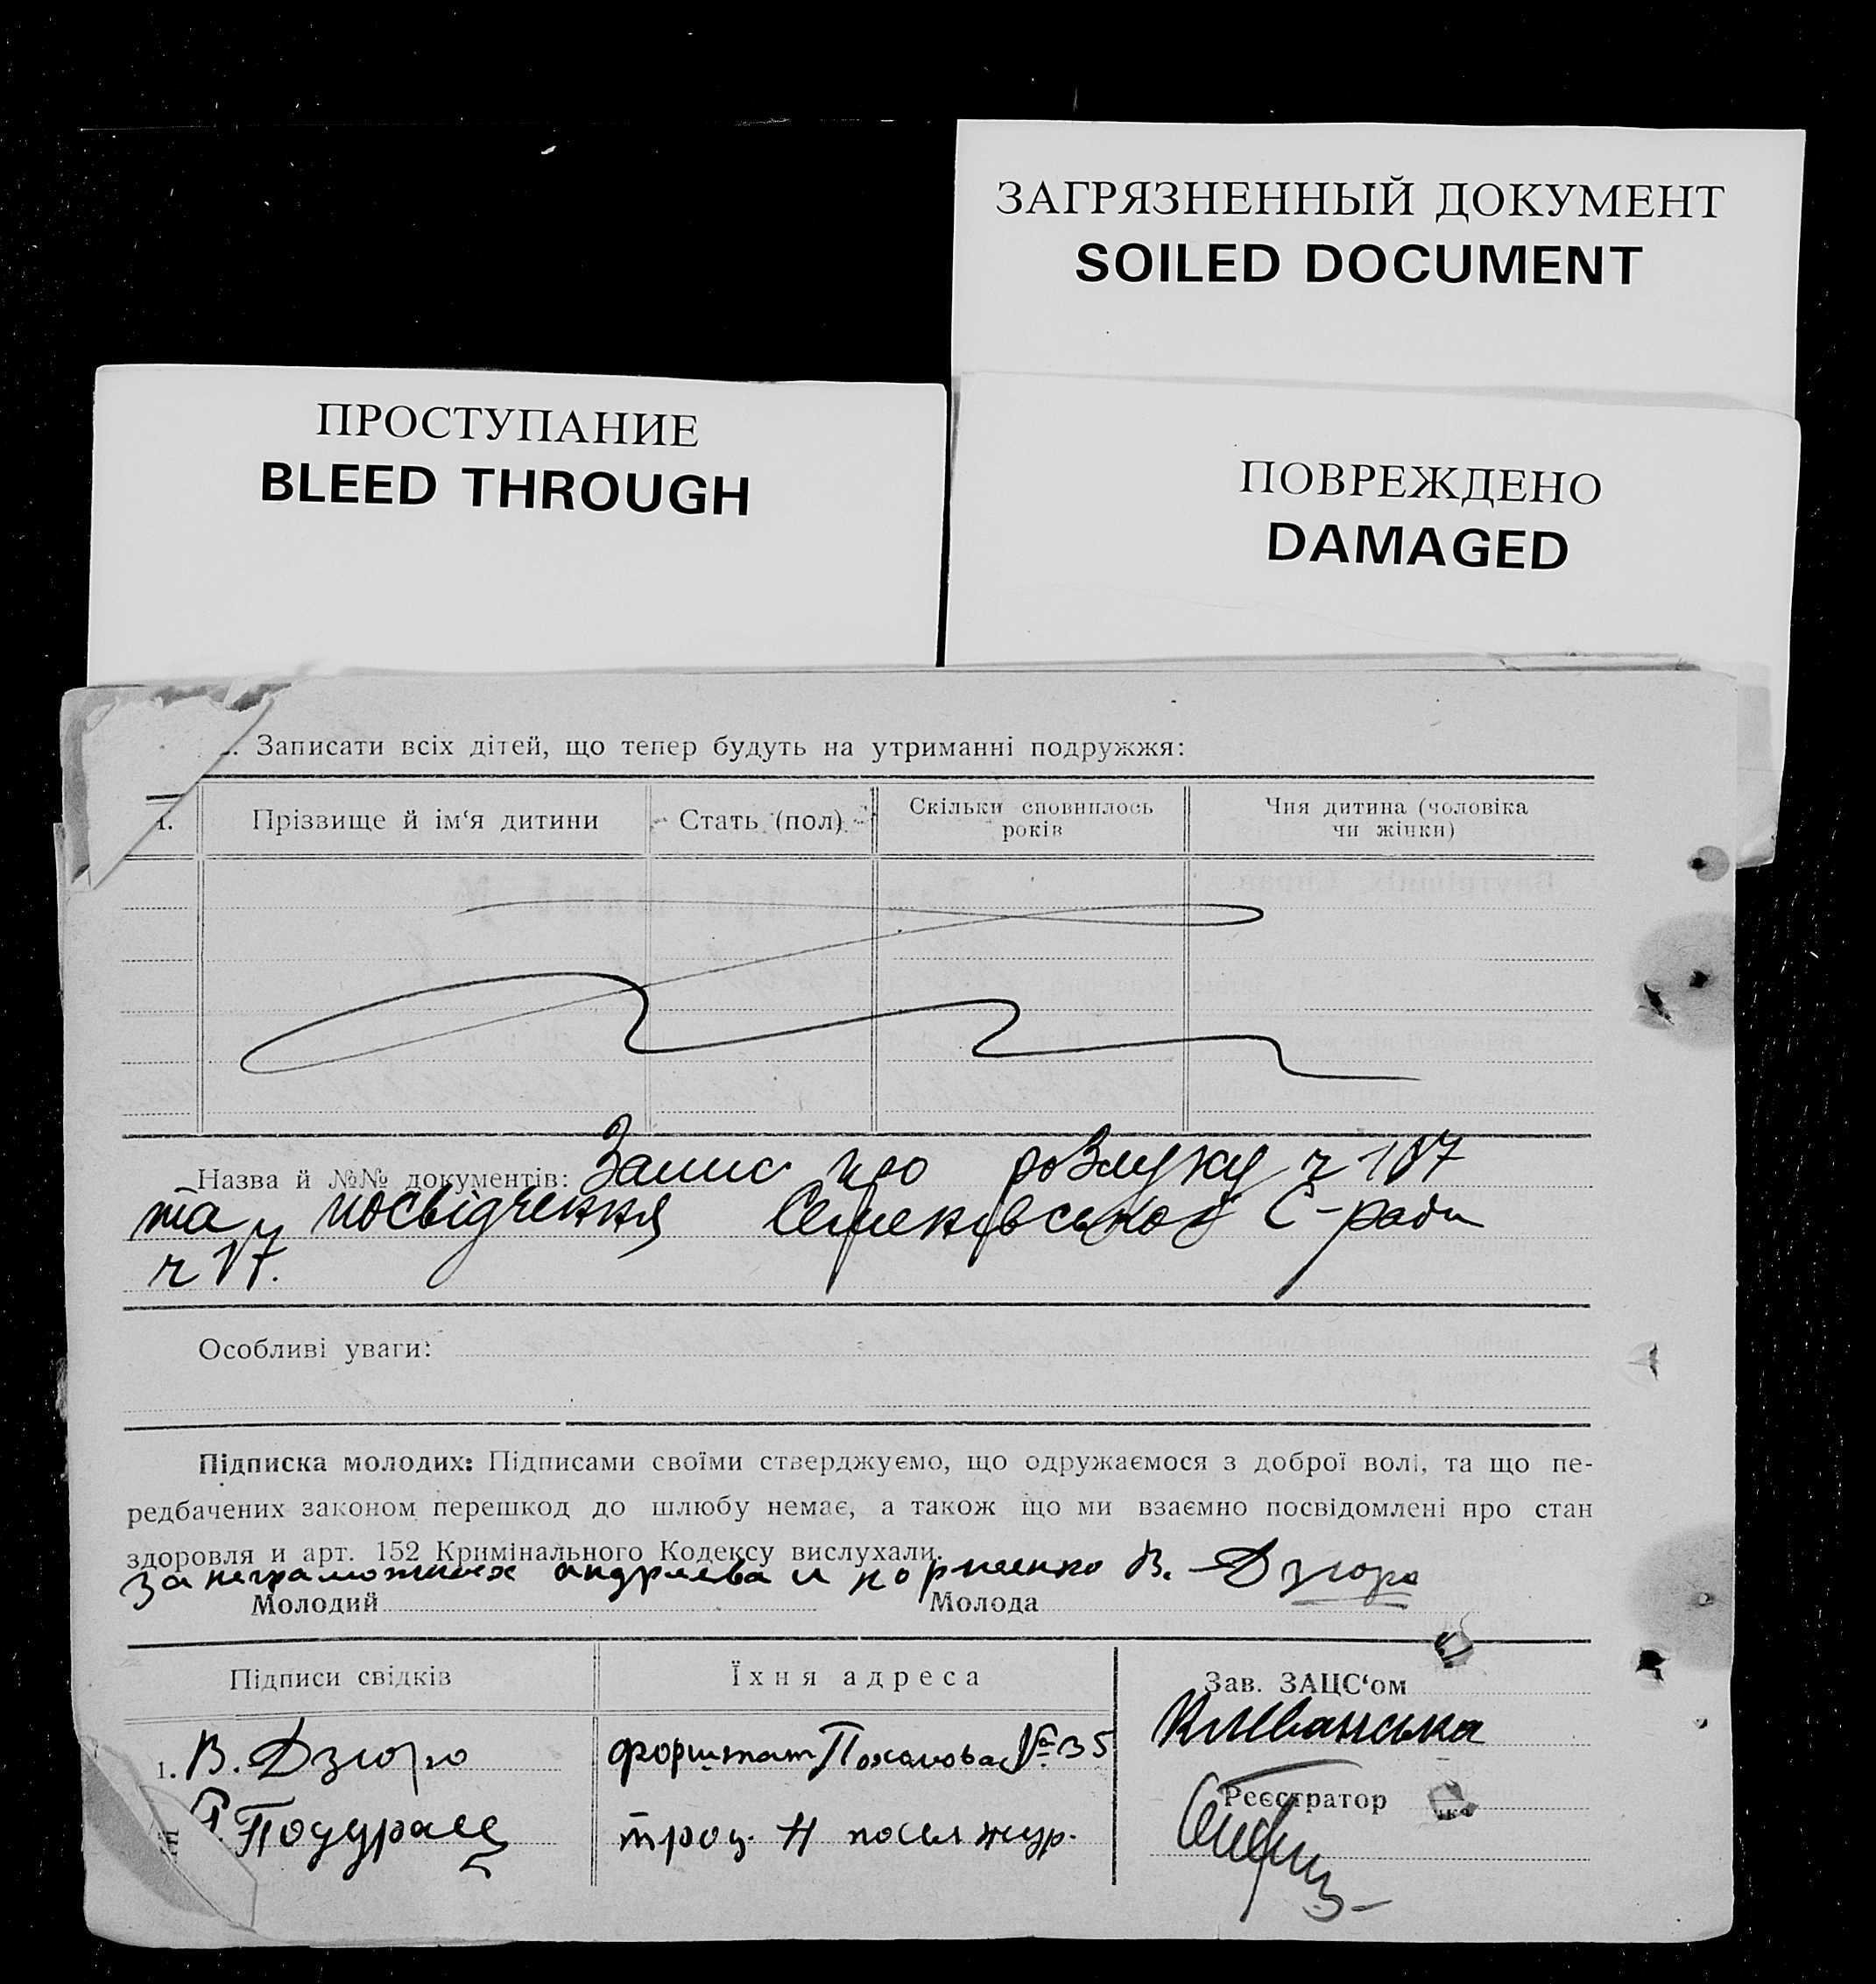 ЗАГРЯЗНЕННЫЙ ДОКУМЕНТ
SOILED DOCUMENT
ПРОСТУПАНИЕ
BLEED THROUGH
ПОВРЕЖДЕНО
DAMAGED
Записати всіх дітей, що тепер будуть на утриманні подружжя:
Прізвище й ім‘я дитини
Стать (пол)
Скільки сповнилось
років
Чия дитина (чоловіка
чи жінки)
Назва й №№ документів: Запис про розлуку ч 107
та посвідчення Семенівської С-ради
ч 17.
Особливі уваги:
Підписка молодих: Підписами своїми стверджуємо, що одружаємося з доброї волі, та що пе-
редбачених законом перешкод до шлюбу немає, а також що ми взаємно посвідомлені про стан
здоровля и арт. 152 Кримінального Кодексу вислухали.
За неграмотных андриева и корниенко В. Дзюра
Молодий
Молода
Підписи свідків
Їхня адреса
Зав. ЗАЦС‘ом
1. В. Дзюра
форштат №35
Реєстратор
троц.